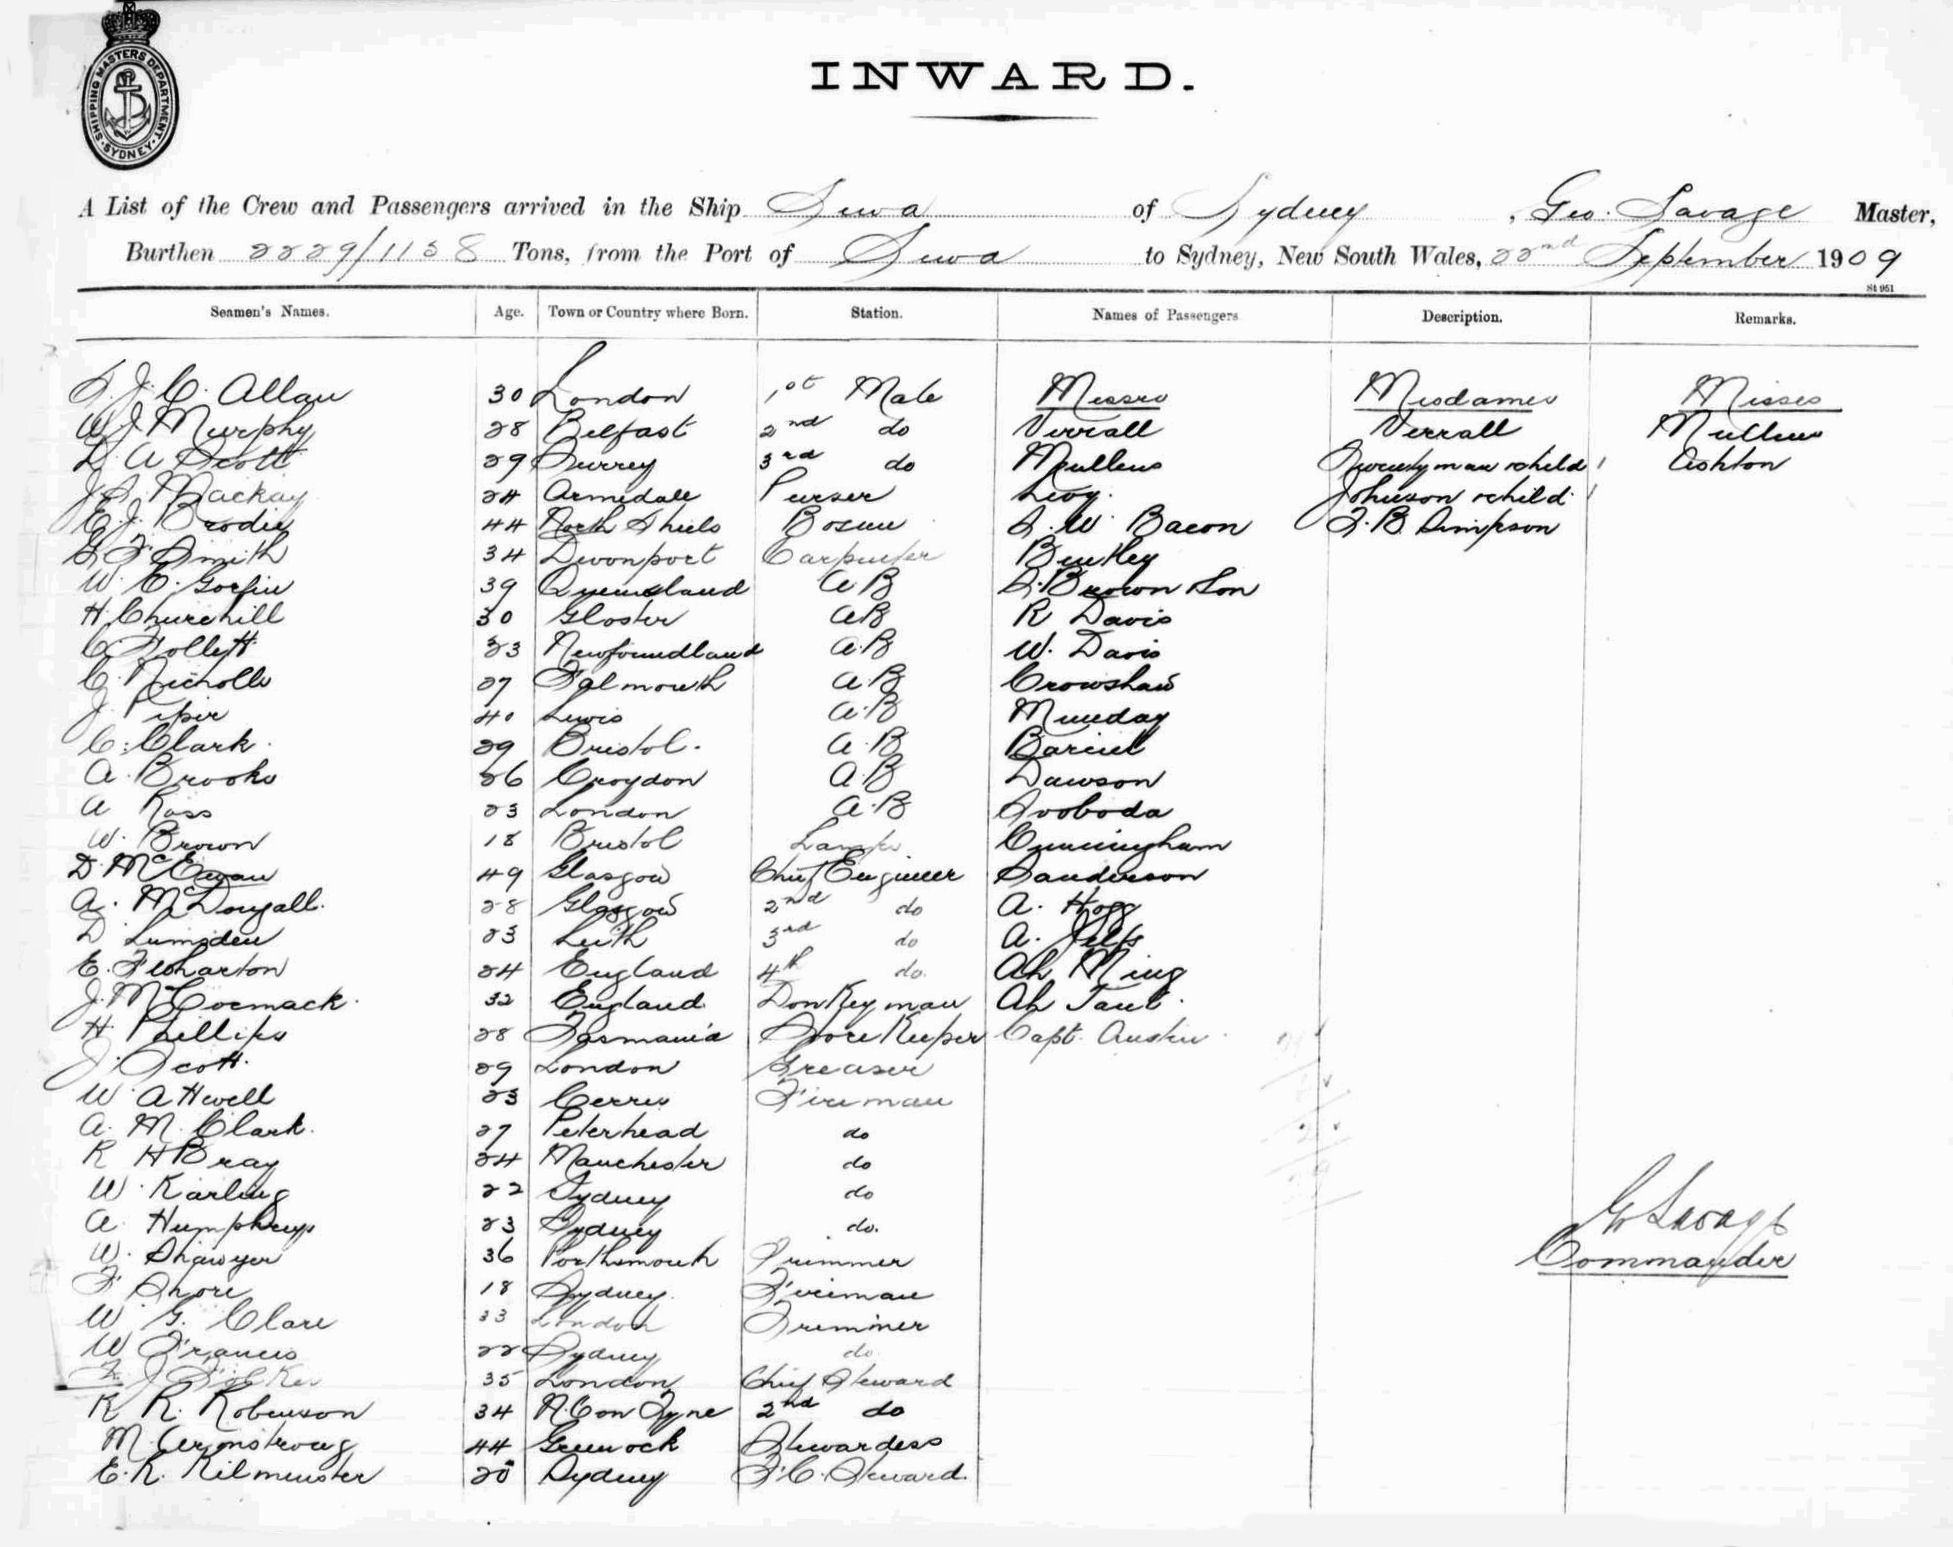 SHIPPING MASTERS DEPARTMENT · SYDNEY ·
INWARD.
A List of the Crew and Passengers arrived in the Ship Suva of Sydney, Geo. Savage Master,
Burthen 2229/1138 Tons, from the Port of Suva to Sydney, New South Wales, 22nd September 1909
St 951
Seamen's Names. Age. Town or Country where Born. Station. Names of Passengers Description. Remarks.
S. J. C. Allan 30 London 1st Mate Messrs Mesdames Misses
W J Murphy 28 Belfast 2nd do Verrall Verrall Mullens
D A Scott 29 Surrey 3rd do Mullens Twentyman & child 1 Ashton
J S Mackay 24 Armidale Purser Levy. Johnson & child 1
E. J. Brodie 44 North Shiels Bosun S. W. Bacon F. B. Simpson
S F Smith 34 Devonport Carpenter Bentley
W. C. Gorfin 39 Queensland AB S. Brown & Son
H. Churchill 30 Gloster AB R Davis
C. Follett 23 Newfoundland A.B W. Davis
C. Nicholls 27 Falmouth A.B Crowshaw
J. Piper 40 Lewis A.B Munday
C. Clark. 29 Bristol. A.B
A. Brooks 26 Croydon A.B Dawson
A Ross 23 London A.B Svoboda
W. Brown 18 Bristol Lamps Cunningham
D. McEwan 49 Glasgow Chief Engineer Sanderson
A. McDougall. 28 Glasgow 2nd do A. Hogg
D Lumsden 23 Leith 3rd do A. Jelfs
E. 24 England 4th do. Ah Ming
J. McCormack. 32 England Donkeyman Ah
H. Phillips 28 Tasmania Store Keeper Capt. Austin
J. Scott. 29 London Greaser
W. A Hewell 23 Fireman
A. M. Clark. 27 Peterhead do
R H Bray 24 Manchester do
W. Karling 22 Sydney do
A. Humphreys 23 Sydney do.
W. Shawyer 36 Porthsmouth Trimmer
F Shore 18 Sydney. Fireman
W. G. Clare 33 London Trimmer
W Francis 22 Sydney do
F. J. 35 London Chief Steward
R R. Robinson 34 N. C on Tyne 2nd do
M. Armstrong 44 Greenock Stewardess
E. R. Kilminster 20 Sydney F. C. Steward.
G Savage
Commander